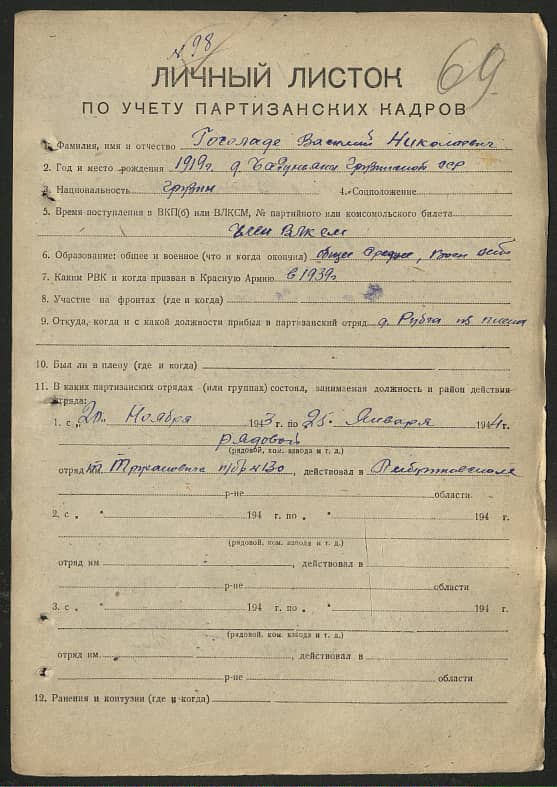 № 98
69
ЛИЧНЫЙ ЛИСТОК
ПО УЧЕТУ ПАРТИЗАНСКИХ КАДРОВ
1. Фамилия, имя и отчество Гоголаде Василий Николаевич
2. Год и место рождения 1919г. д. Грузинской сср
3. Национальность грузин 4. Соцположение
5. Время поступления в ВКП(б) или ВЛКСМ, № партийного или комсомольского билета
член ВЛКСМ
6. Образование: общее и военное (что и когда окончил) общее среднее,
7. Каким РВК и когда призван в Красную Армию в 1939г
8. Участие на фронтах (где и когда)
9. Откуда, когда и с какой должности прибыл в партизанский отряд из плена
10. Был ли в плену (где и когда)
11. В каких партизанских отрядах (или группах) состоял, занимаемая должность и район действия
отряда:
1. с „20“ Ноября 1943 г. по „25“ Января 1944 г.
рядовой
(рядовой, ком. взвода и т. д.)
отряд им. , действовал в
р-не области.
2. с „ “ 194 г. по „ “ 194 г.
(рядовой, ком. взвода и т. д.)
отряд им , действовал в
р-не области
3. с „ “ 194 г. по „ “ 194 г.
(рядовой, ком. взвода и т. д.)
отряд им. , действовал в
р-не области
12. Ранения и контузии (где и когда)